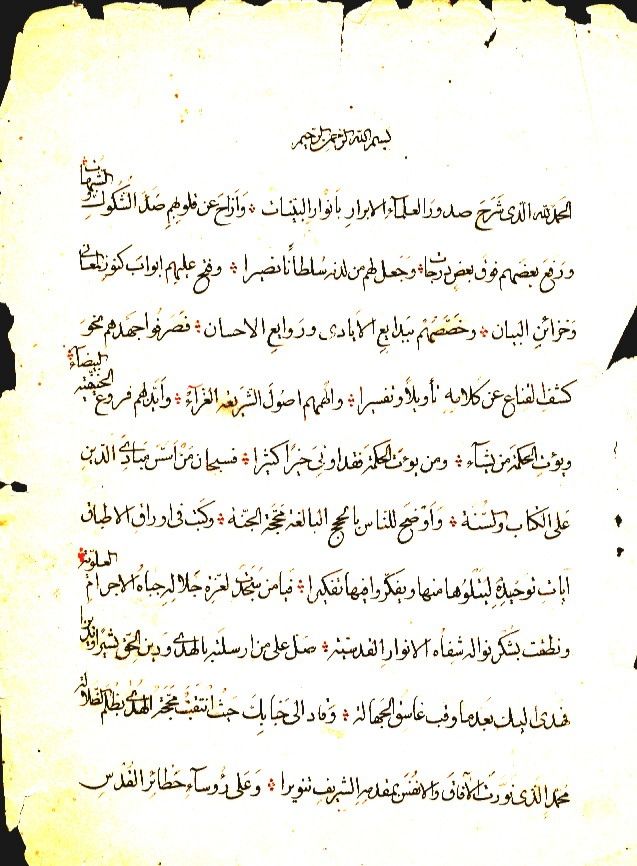 بسم الله الرحمن الرحيم
الحمد لله الذى شرح صدور العلماء الابرار بأنوار البينات وأزاح عن قلوبهم صدأ الشكوك والشبهات
ورفع بعضهم فوق بعض درجات وجعل لهم من لدنه سلطانا نصيرا وفتح عليهم ابواب كنوز المعانى
وخزائن البيان وخصصهم ببدايع الايادى وروايع الاحسان فصرفوا جهدهم نحو
كشف القناع عن كلامه تأويلا وتفسيرا والهمهم اصول الشريعة الغراء وأيدهم فروع الحنيفية البيضاء
ويؤتى الحكمة من يشاء ومن يؤت الحكمة فقد اوتى خيرا كثيرا فسبحان من اسس مبادى الدين
على الكتاب والسنة وأوضح للناس بالحجج البالغة محجة الجنة وكتب فى اوراق الاطباق
ايات توحيده ليتلوها منها ويفكروا فيها تفكيرا فيا من لعزة جلاله جباه الاجرام العلوية
ونطقت بشكر نواله شفاه الانوار القدسية صل على من ارسلته بالهدى ودين الحق بشيرا ونذيرا
فهدى اليك بعد ما وقب غاسق الجهالة وقاد الى جنابك حيث انتقبت محجة الهدى بظلم الضلالة
محمد الذى نورت الآفاق والانفس بمقدمه الشريف تنويرا وعلى رؤساء حظائر القدس